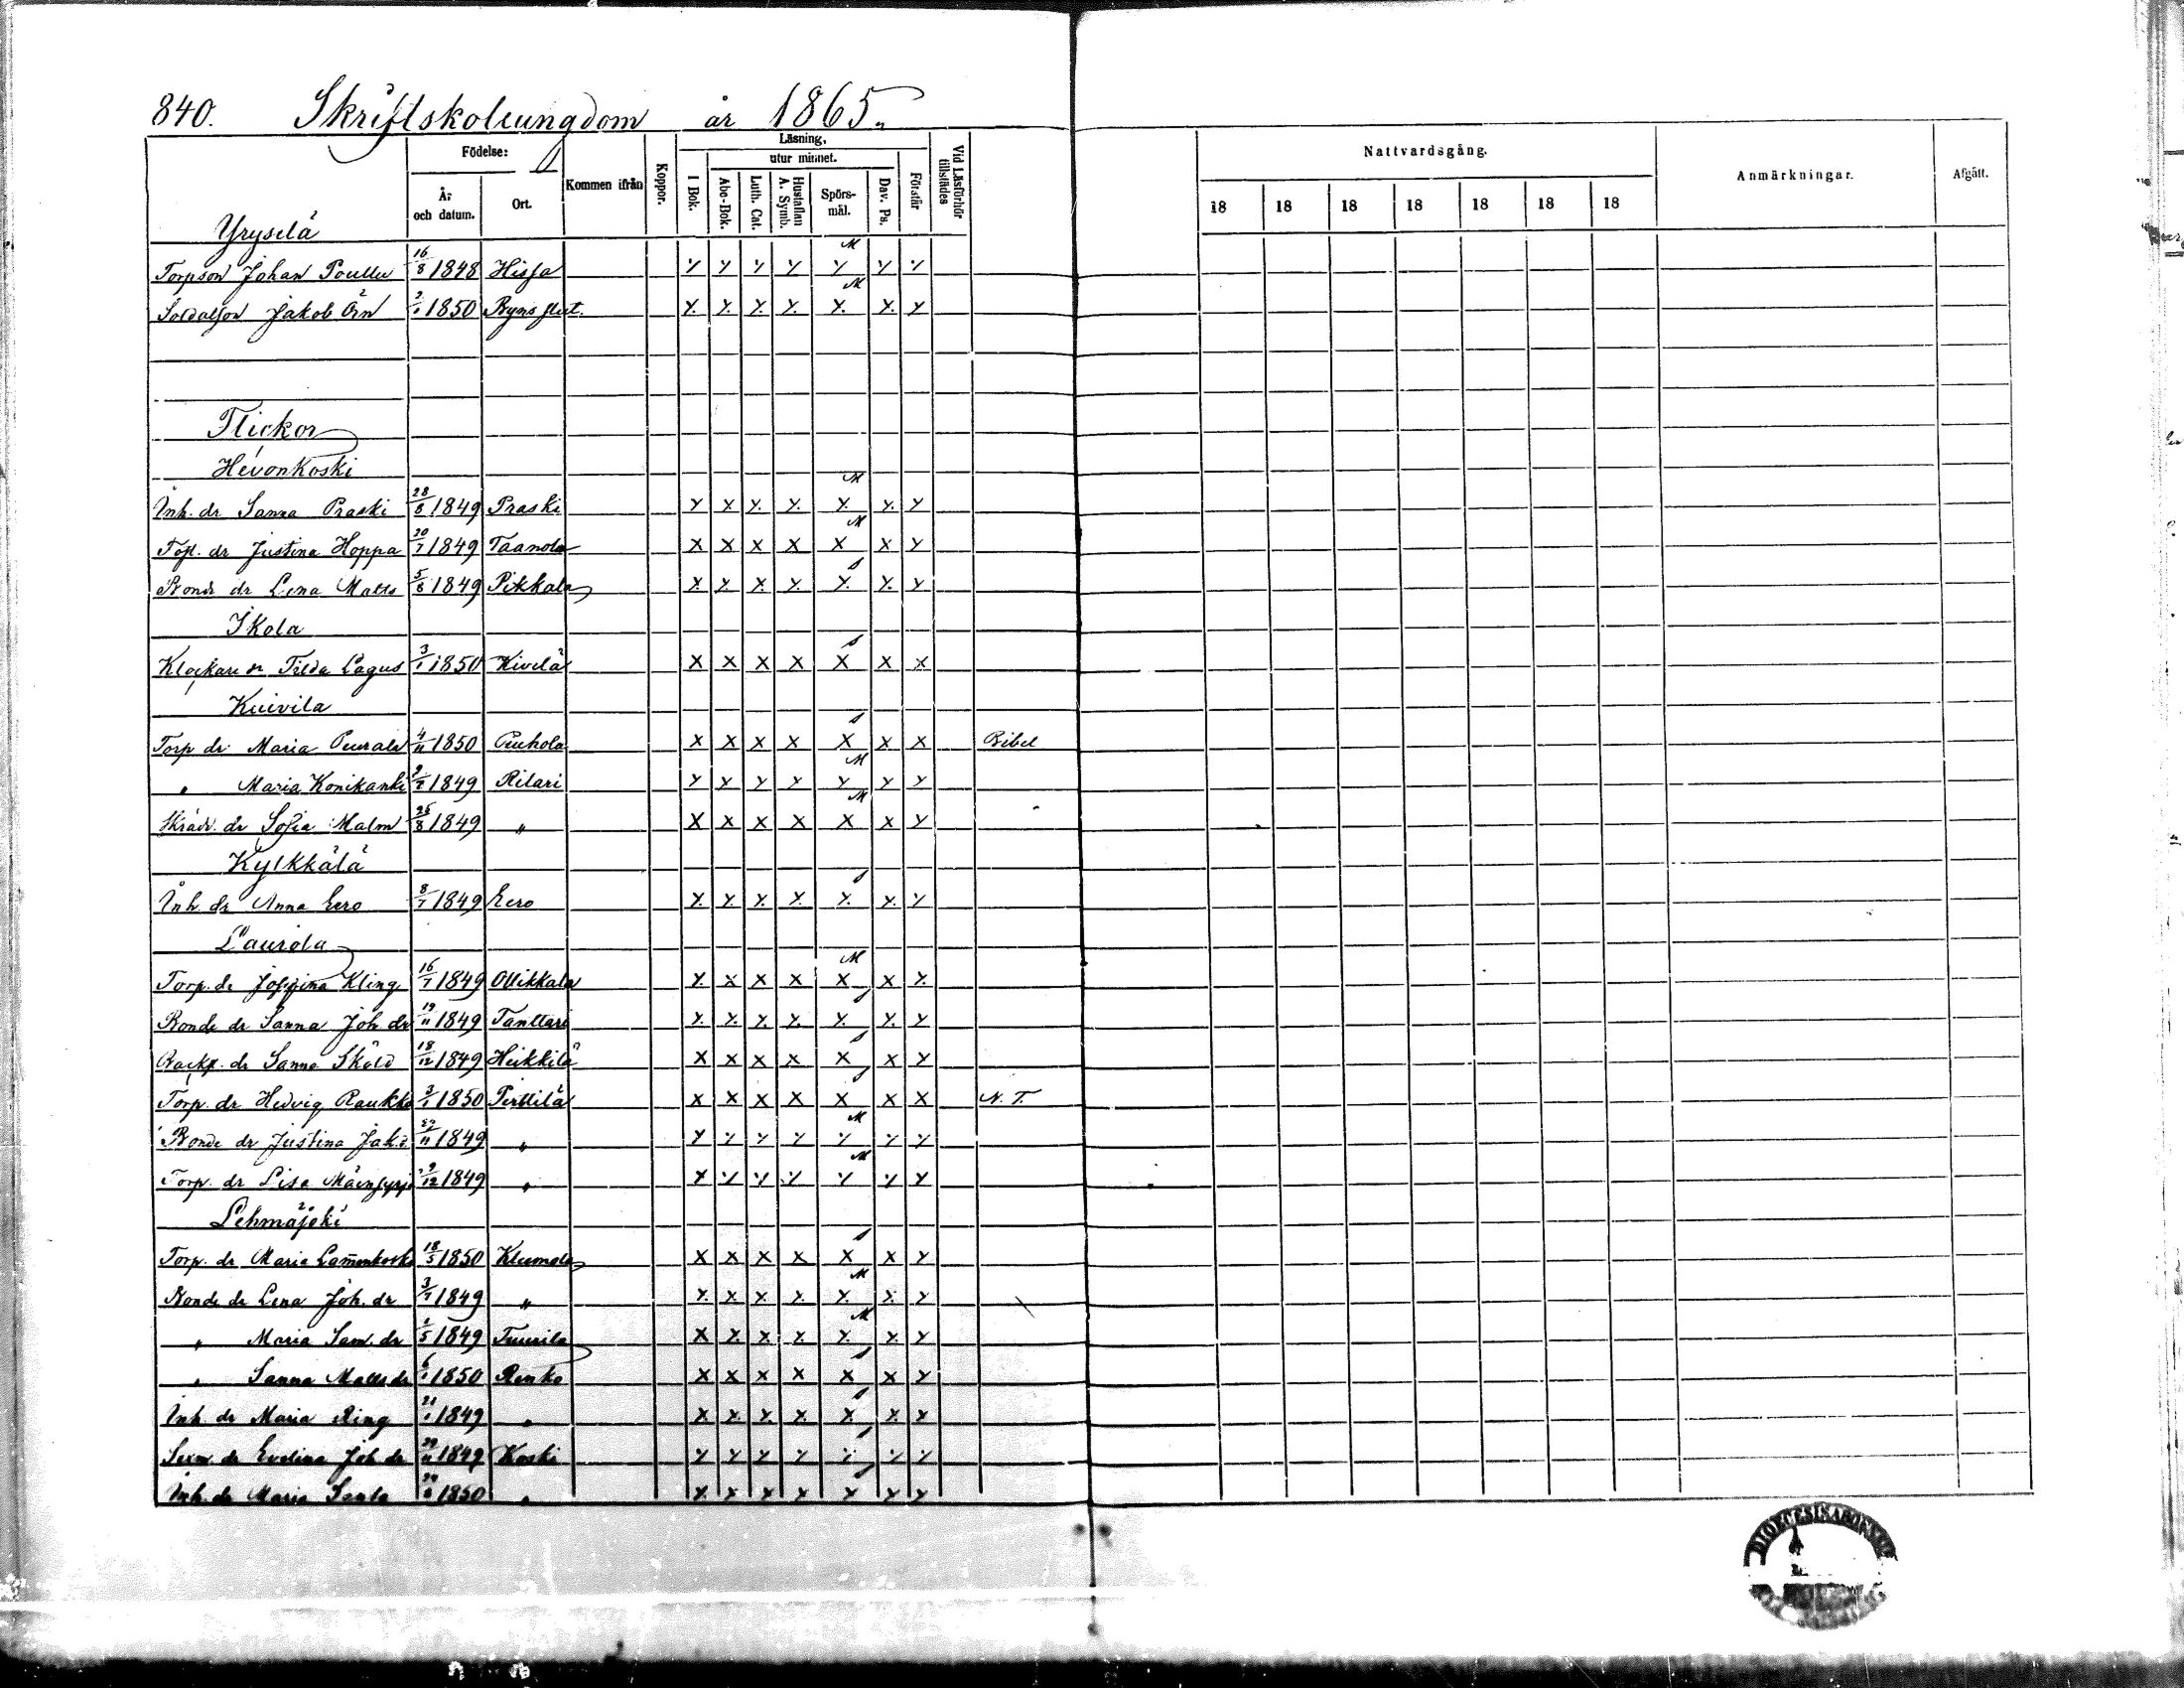 840. Skriftskoleungdom år 1865.
Födelse:
År och datum.
Ort.
Kommen ifrån
Koppor.
Läsning,
utur minnet.
I Bok.
Abc-Bok.
Luth. Cat.
Hustaflan A. Symb.
Spörs-mål.
Dav. Ps.
Förstår
Vid Läsförhör tillstädes
Nattvardsgång.
18 18 18 18 18 18 18
Anmärkningar.
Afgått.
Yryselä
Torpson Johan Poullu 16/8 1848 Hissa M
Soldatson Jakob Örn 1850 M
Flickor
Hevonkoski
Inh. dr Sanna Praski 28/8 1849 Praski M
dr Justina Hoppa 20/7 1849 Taanola M
Bonde dr Lena Matts 5/8 1849 Pikkala
Ikola
Klockare dr Tilda Lagus 3/1 1850 Kivelä
Kuivila
Torp dr Maria 4/11 1850 Puhola Bibel
" Maria Konikanki 1849 Rilari M
Skräd. dr Sofia Malm 26/8 1849 " M
Kylkkälä
Inh. dr Anna Eero 8/7 1849 Eero
Laurola
Torp. dr Josefina Kling 16/7 1849 Ollikkala M
Bonde dr Sanna Joh dr 19/11 1849 Tanttari
Backst. dr Sanna Sköld 18/12 1849 Heikkilä
Torp. dr Hedvig Raukko 3/1 1850 Perttilä N. T.
Bonde dr Justina Jak. 27/11 1849 " M
Torp. dr Lisa 9/12 1849 " M
Lehmäjoki
Torp. dr Maria Lam̄inkoski 18/5 1850 Klemola
Bonde dr Lena Joh. dr 3/7 1849 " M
" Maria Sam. dr 1849 Tuurila M
" Sanna Matts dr 6/1 1850 Renko
Inh dr Maria Ring 21/1 1849 "
dr Evelina Joh dr 29/11 1849 Koski
Inh. dr Maria 1850 "
DIOECESIS ABOENSIS